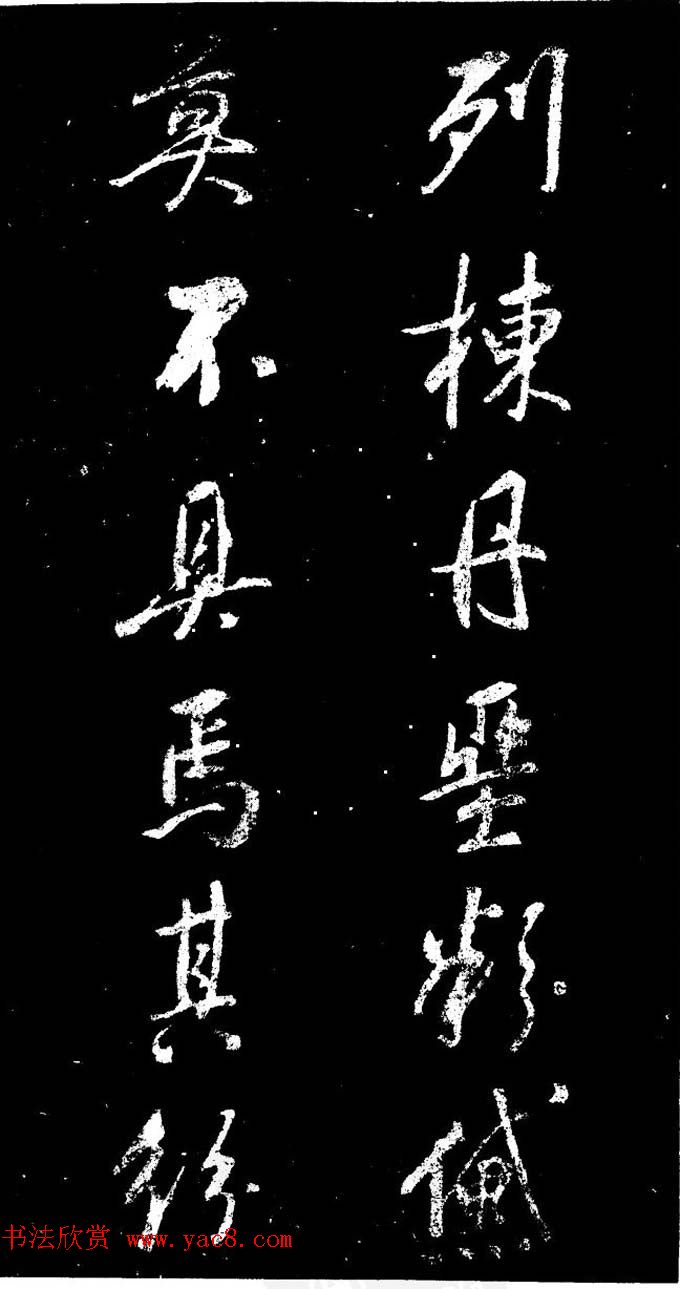 列棟丹堊
莫不具焉其
书法欣赏 www.yac8.com